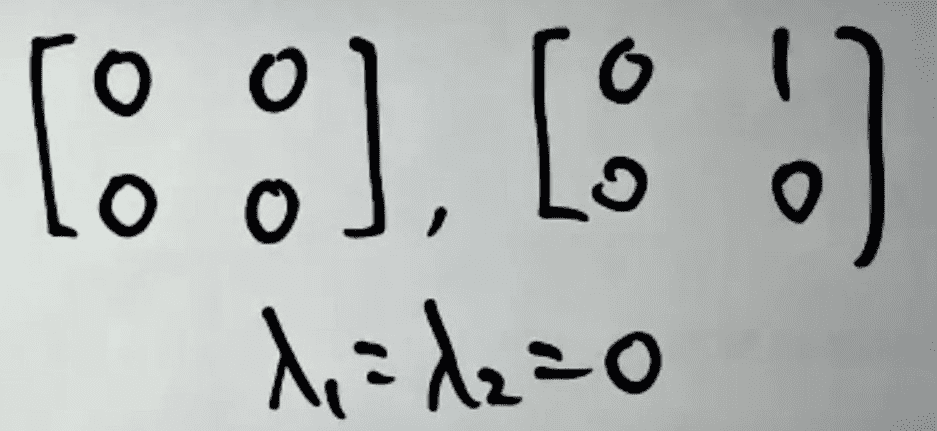 [0 0
0 0], [0 1
0 0]
λ₁=λ₂=0